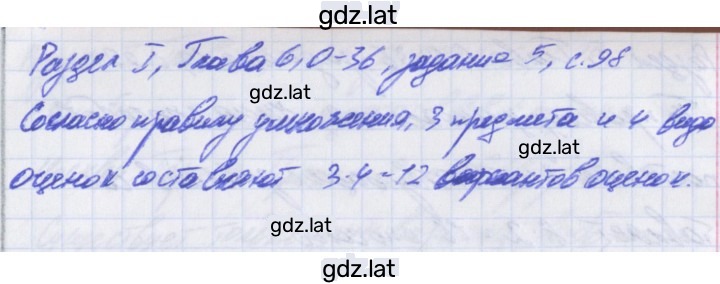 gdz.lat
Раздел I, Глава 6, О-36, задание 5, с. 98
gdz.lat
Согласно правилу умножения, 3 предмета и 4 вида
gdz.lat
оценок составляют 3·4=12 вариантов оценок.
gdz.lat
gdz.lat